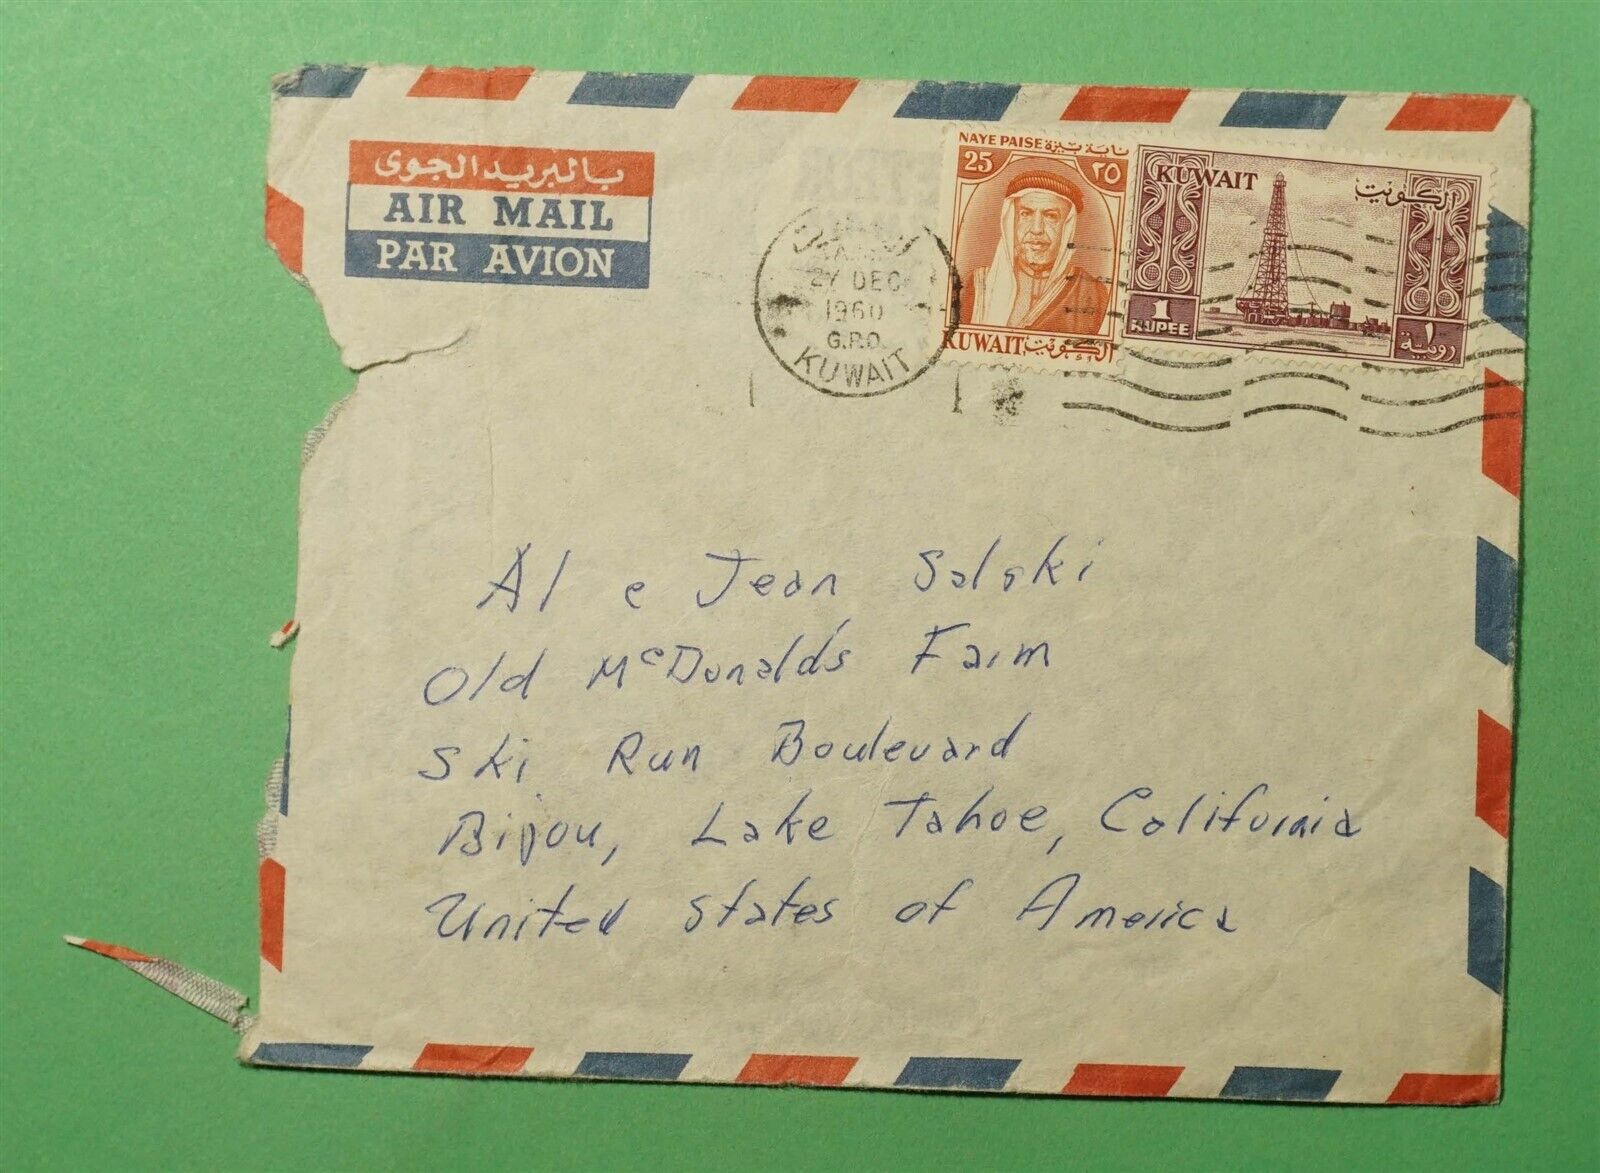 بالبريد الجوى
AIR MAIL
PAR AVION
27 DEC
1960
G.P.O.
KUWAIT
NAYE PAISE ناية بيزة
25 ٢٥
KUWAIT الكويت
KUWAIT الكويت
1 ١
RUPEE روبية
Al e Jean Salski
Old McDonald's Farm
Ski Run Boulevard
Bijou, Lake Tahoe, California
United States of America